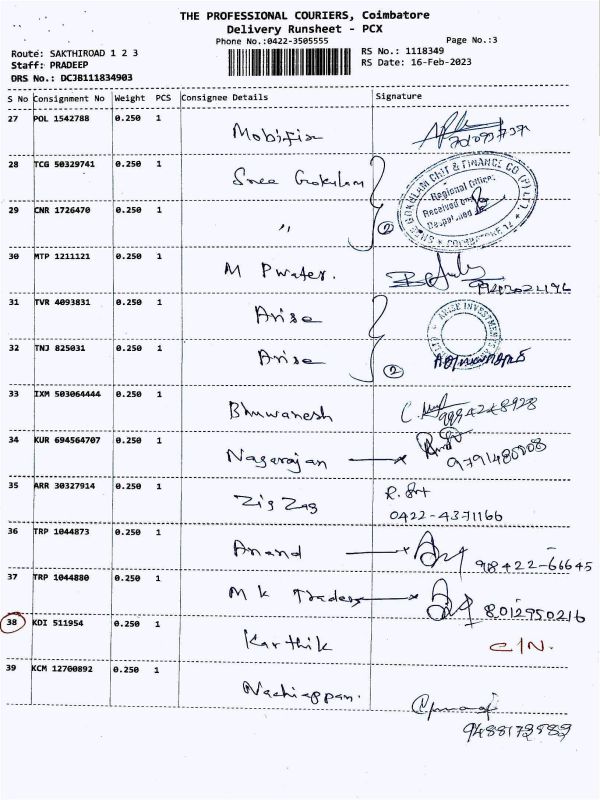 THE PROFESSIONAL COURIERS, Coimbatore
Delivery Runsheet - PCX
Phone No.:0422-3505555
Page No.:3
Route: SAKTHIROAD 1 2 3
RS No.: 1118349
Staff: PRADEEP
RS Date: 16-Feb-2023
DRS No.: DCJB111834903
S No Consignment No Weight PCS Consignee Details Signature
27 POL 1542788 0.250 1
Mobifix
28 TCG 50329741 0.250 1
Sree Gokulam
SREE GOKULAM CHIT & FINANCE CO (P) LTD.
Regional Office
Received
COIMBATORE
29 CNR 1726470 0.250 1
" 2
30 MTP 1211121 0.250 1
M Pwater.
31 TVR 4093831 0.250 1
Arise
ARISE INVESTMENTS
32 TNJ 825031 0.250 1
Arise 2
33 IXM 503064444 0.250 1
Bhuwanesh 9994248928
34 KUR 694564707 0.250 1
Nagarajan 9791480808
35 ARR 30327914 0.250 1
Zig Zag
0422-4371166
36 TRP 1044873 0.250 1
Anand 98422-66645
37 TRP 1044880 0.250 1
M K Traders 8012950216
38 KDI 511954 0.250 1
Karthik C/N.
39 KCM 12700892 0.250 1
Nachiappan.